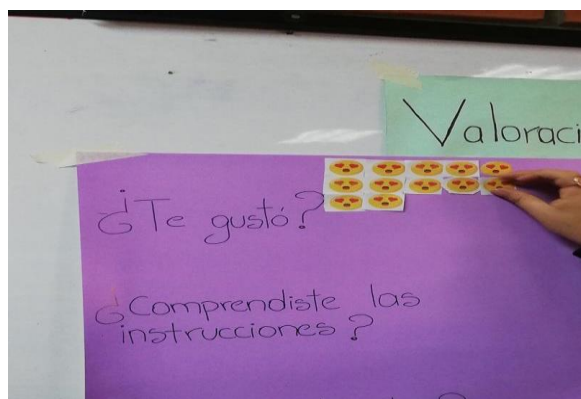 Valoraci
¿Te gustó?
¿Comprendiste las
instrucciones?